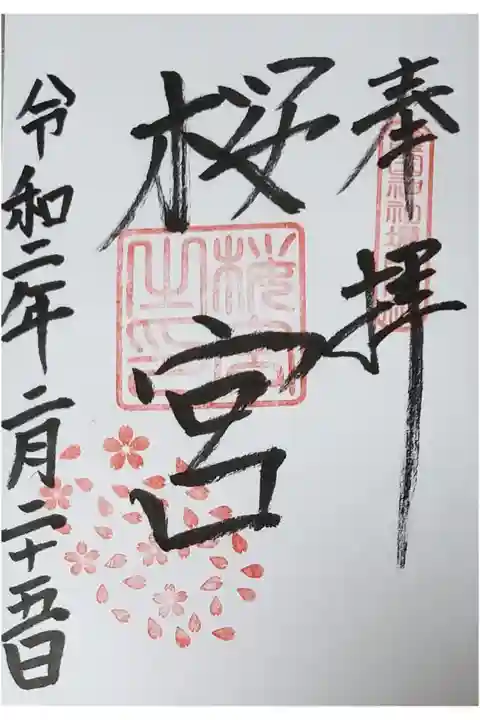 奉拝
桜宮
令和二年二月二十五日
桜宮之印